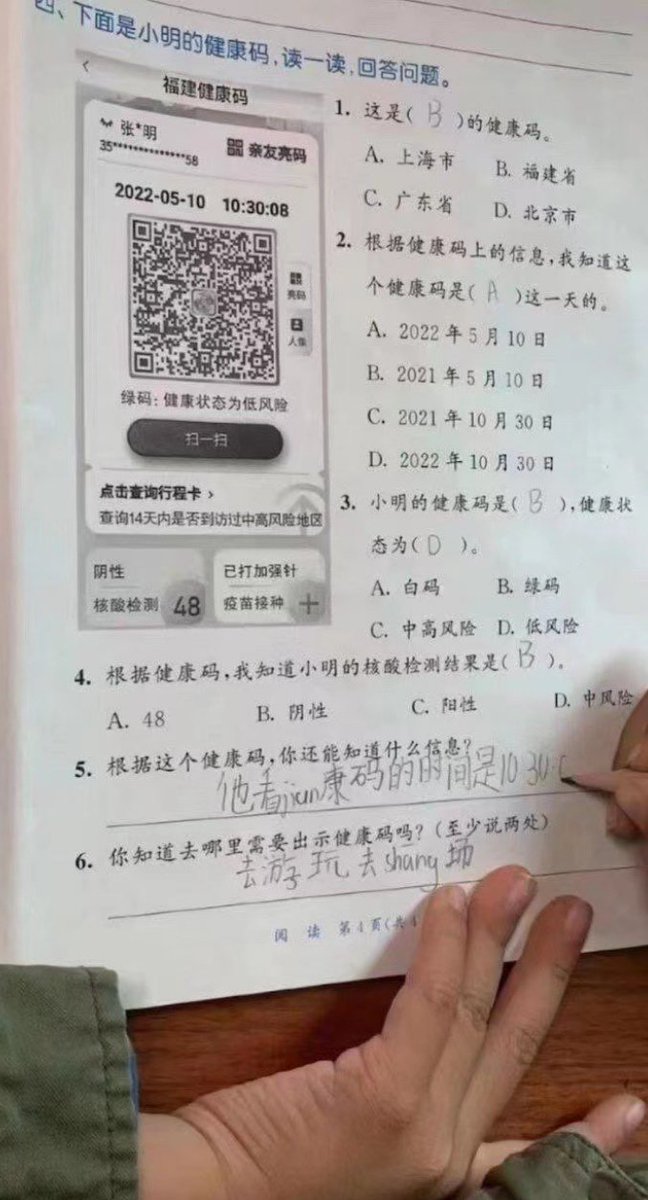 四、下面是小明的健康码,读一读,回答问题。
福建健康码
张*明
35**************58
亲友亮码
2022-05-10 10:30:08
亮码
人像
绿码:健康状态为低风险
扫一扫
点击查询行程卡 ›
查询14天内是否到访过中高风险地区
阴性
核酸检测 48
已打加强针
疫苗接种
1. 这是( B )的健康码。
A. 上海市 B. 福建省
C. 广东省 D. 北京市
2. 根据健康码上的信息,我知道这
个健康码是( A )这一天的。
A. 2022年5月10日
B. 2021年5月10日
C. 2021年10月30日
D. 2022年10月30日
3. 小明的健康码是( B ),健康状
态为( D )。
A. 白码 B. 绿码
C. 中高风险 D. 低风险
4. 根据健康码,我知道小明的核酸检测结果是( B )。
A. 48 B. 阴性 C. 阳性 D. 中风险
5. 根据这个健康码,你还能知道什么信息?
他看jian康码的时间是10:30:
6. 你知道去哪里需要出示健康码吗?(至少说两处)
去游玩去shang场
阅 读 第4页(共4